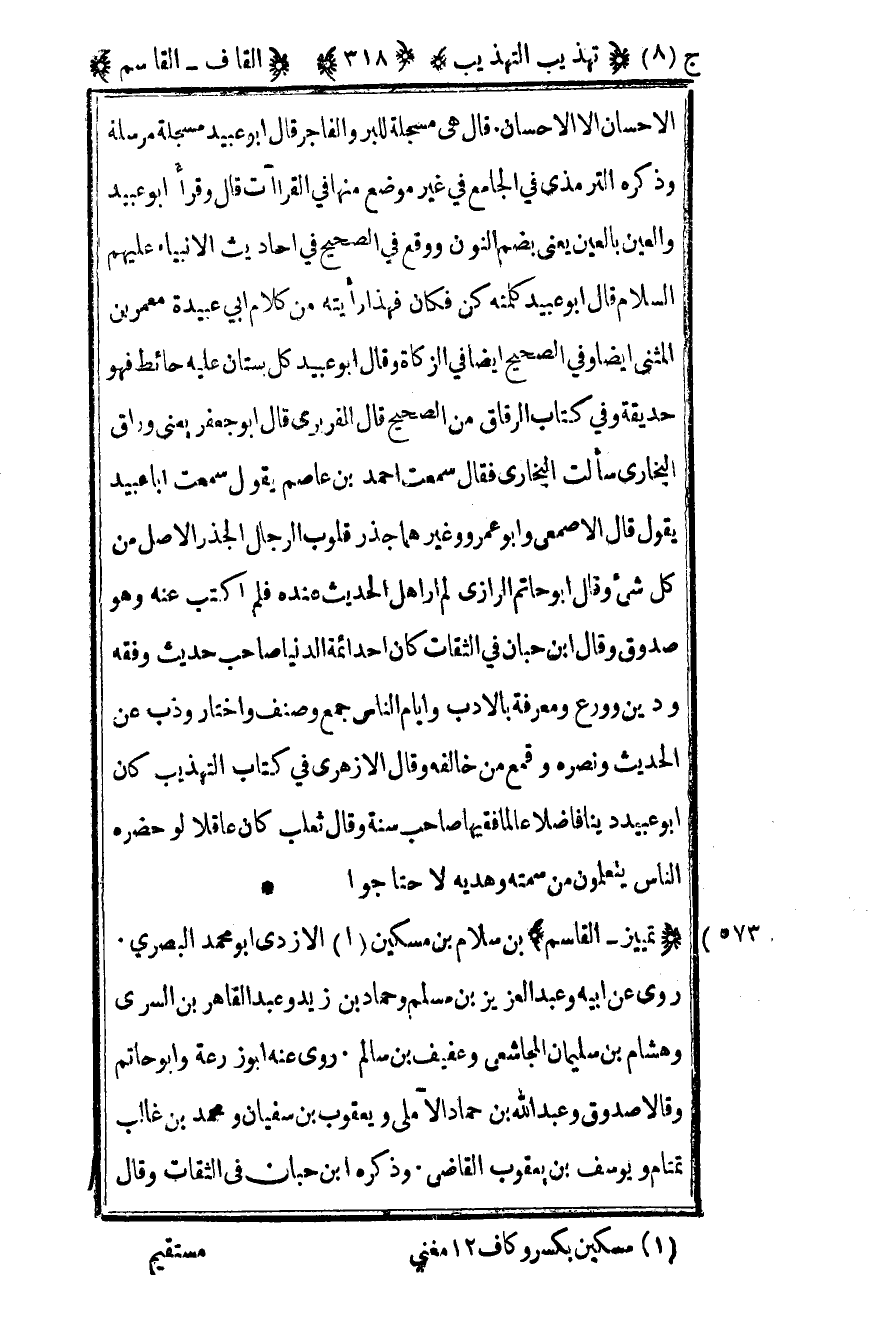 ج (٨) ﴿ تهذيب التهذيب ﴾ ﴿ ٣١٨ ﴾ ﴿ القاف ـ القاسم ﴾
الاحسان الا الاحسان. قال هى مسجلة للبر والفاجر قال ابو عبيد مسجلة مرسلة
وذكره الترمذى في الجامع في غير موضع منها في القراآت قال وقرأ ابو عبيد
والعين بالعين يعنى بضم النون ووقع في الصحيح في احاديث الانبياء عليهم
السلام قال ابو عبيد كلمته كن فكان فهذا رأيته من كلام ابي عبيدة معمر بن
المثنى ايضا وفي الصحيح ايضا في الزكاة وقال ابو عبيد كل بستان عليه حائط فهو
حديقة وفي كتاب الرقاق من الصحيح قال الفربرى قال ابو جعفر يعنى وراق
البخارى سألت البخارى فقال سمعت احمد بن عاصم يقول سمعت ابا عبيد
يقول قال الاصمعى وابو عمرو وغيرهما جذر قلوب الرجال الجذر الاصل من
كل شئ وقال ابو حاتم الرازى لم ار اهل الحديث عنده فلم اكتب عنه وهو
صدوق وقال ابن حبان في الثقات كان احد ائمة الدنيا صاحب حديث وفقه
ودين وورع ومعرفة بالادب وايام الناس جمع وصنف واختار وذب عن
الحديث ونصره وقمع من خالفه وقال الازهرى في كتاب التهذيب كان
ابو عبيد دينا فاضلا عالما فقيها صاحب سنة وقال ثعلب كان عاقلا لو حضره
الناس يتعلمون من سمته وهديه لاحتاجوا •
٥٧٣) ﴿ تمييز ـ القاسم ﴾ بن سلام بن مسكين (١) الازدى ابو محمد البصري.
روى عن ابيه وعبد العزيز بن مسلم وحماد بن زيد وعبد القاهر بن السرى
وهشام بن سليمان المجاشعى وعفيف بن سالم. روى عنه ابو زرعة وابو حاتم
وقالا صدوق وعبد الله بن حماد الآملى ويعقوب بن سفيان ومحمد بن غالب
تمتام ويوسف بن يعقوب القاضى. وذكره ابن حبان فى الثقات وقال
(١) مسكين بكسر وكاف ١٢ مغني مستقيم